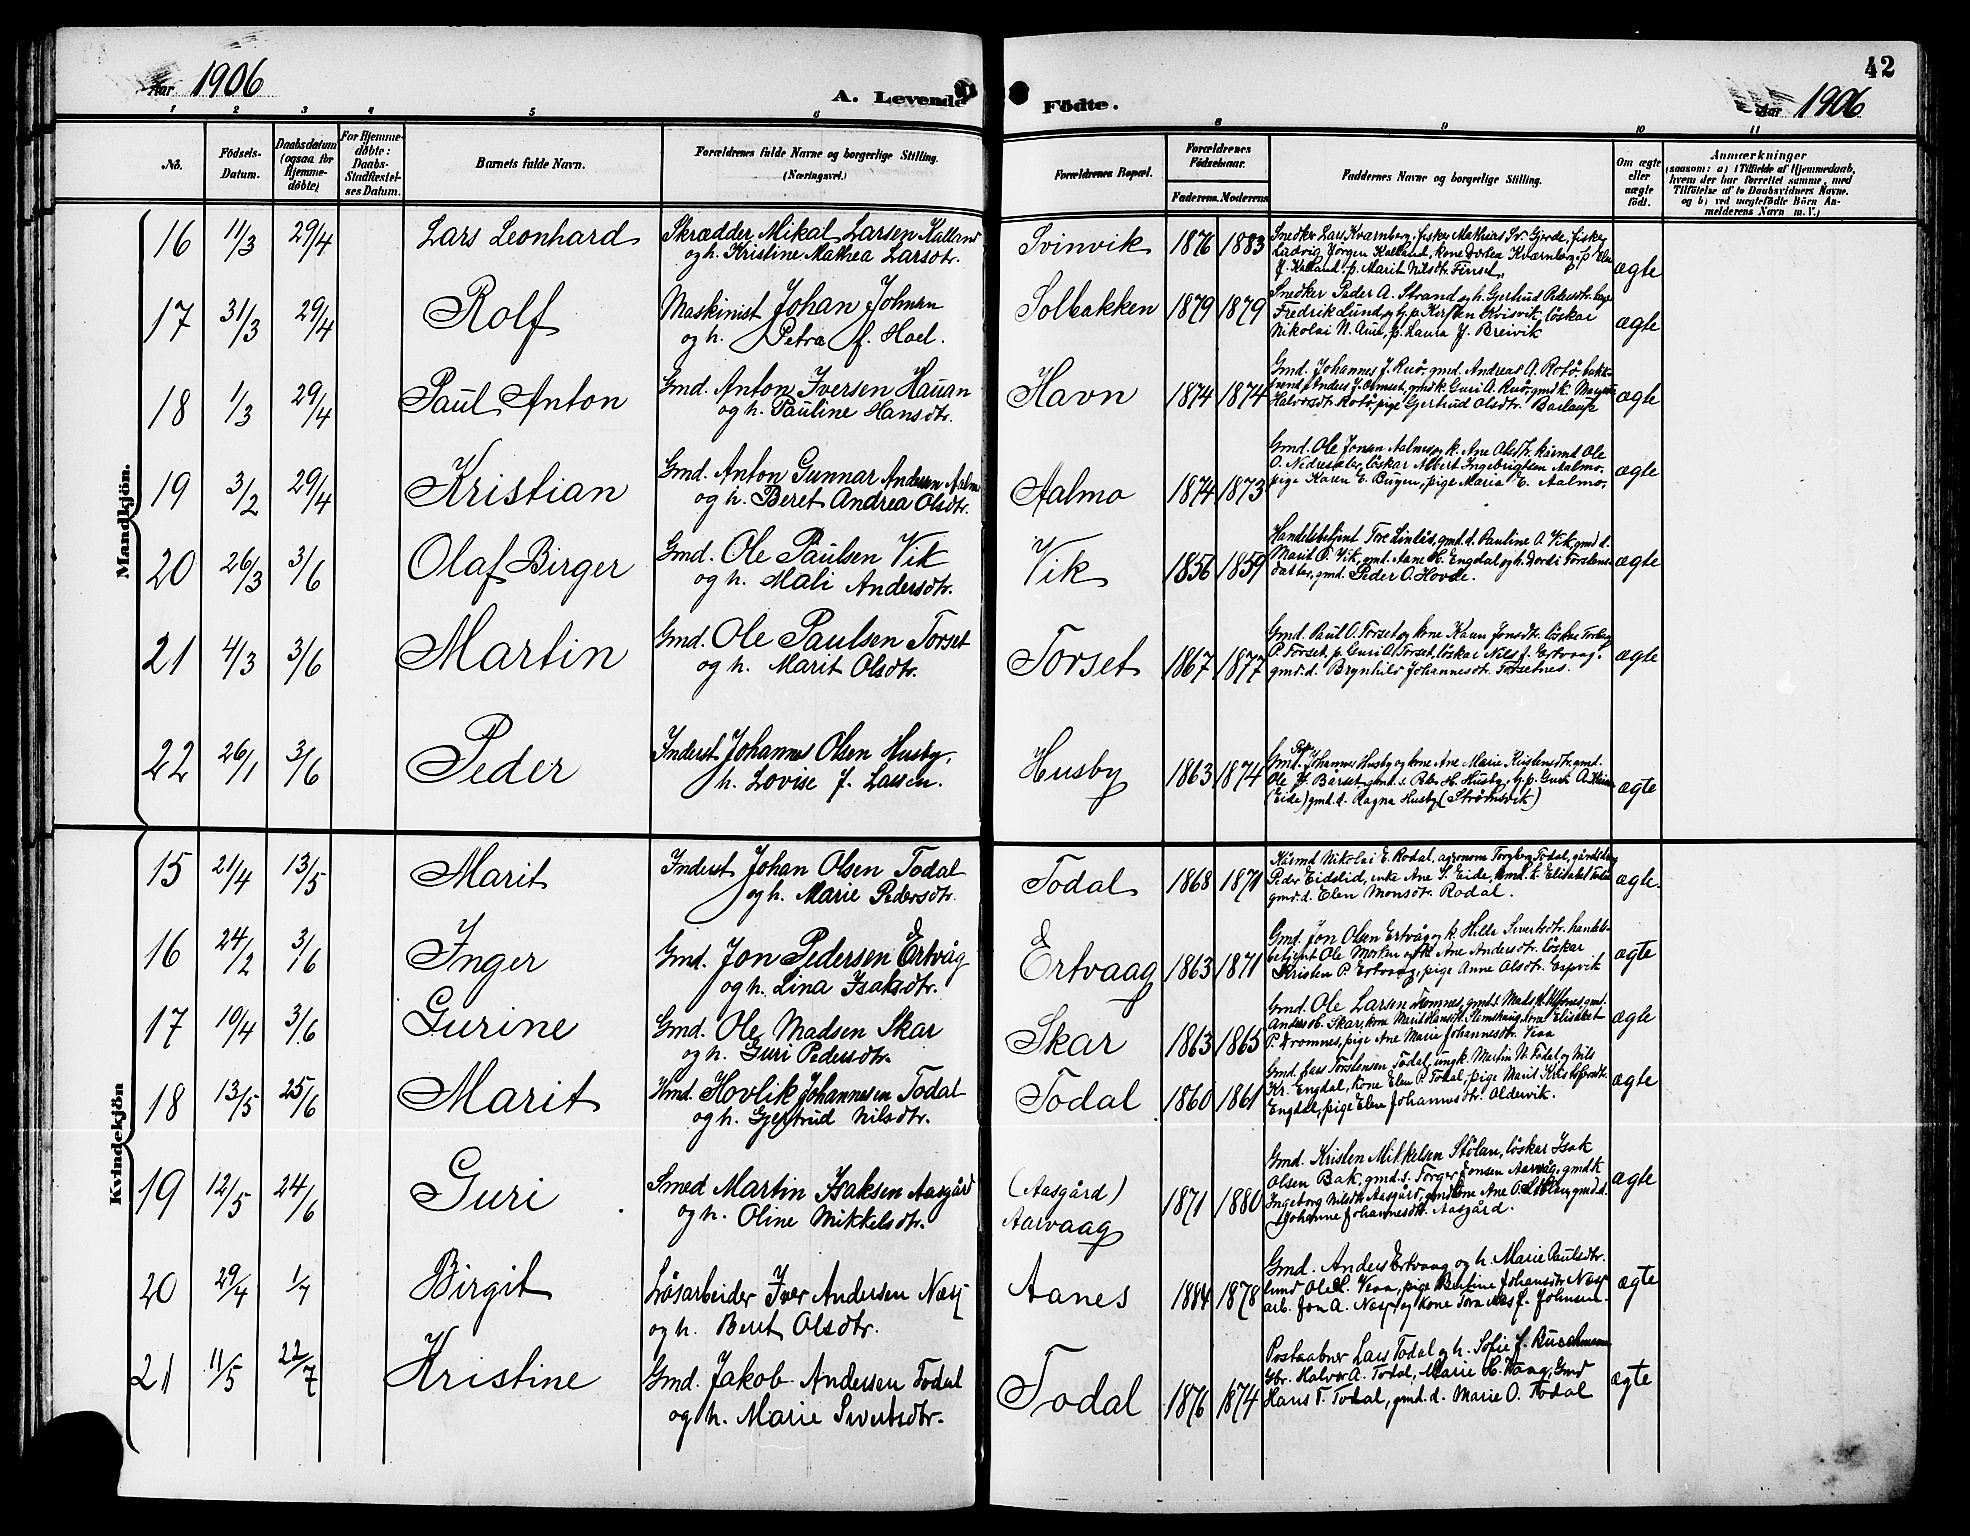 Aar 1906
A. Levende Fødte.
Aar 1906
42
1 2 3 4 5 6 8 9 10 11
No.
Fødsels-Datum.
Daabsdatum (ogsaa for Hjemmedøbte)
For Hjemmedøbte: Daabs-Stadfæstelses Datum.
Barnets fulde Navn.
Forældrenes fulde Navne og borgerlige Stilling.
(Næringsvei.)
Forældrenes Bopæl.
Forældrenes Fødselsaar.
Faderens. Moderens.
Faddernes Navne og borgerlige Stilling.
Om ægte eller uægte født.
Anmærkninger
(saasom: a) i Tilfælde af Hjemmedaab,
hvem der har forrettet samme, med
Tilføielse af to Daabsvidners Navne.
og b) ved uægtefødte Børn Anmelderens Navn m. V.)
Mandkjön.
16 11/3 29/4 Lars Leonhard Skrædder Mikal Larsen Kalland
og h. Kristine Mathea Larsdtr. Svinvik 1876 1883
Snedker Lars Kvarnberg, fisker Mathias Gjerde, fisker
Ludvig Jørgen Kalland, kone Dortea Kværnberg, p. Elen
J. Kalland p. Marit Nilsdtr. Finset. ægte
17 31/3 29/4 Rolf Maskinist Johan Johnsen
og h. Petra f. Hoel. Solbakken 1879 1879
Snedker Peder A. Strand og h. Gjertrud Pedersdtr.
Fredrik Lund, p. Kirsten Kvisvik, löskar
Nikolai N. Aune, p. Laura J. Breivik ægte
18 1/3 29/4 Paul Anton Gmd. Anton Iversen Hauan
og h. Pauline Hansdtr. Havn 1874 1874
Gmd. Johannes J. Ruö, gmd. Andreas A. Rotö,
Anders J. Ormset, gmdk. Guri A. Ruö, gmdk.
Halvorsdtr. Rotö, pige Gjertrud Olsdtr. ægte
19 3/2 29/4 Kristian Gmd. Anton Gunnar Andersen Aalmo
og h. Beret Andrea Olsdtr. Aalmo 1874 1873
Gmd. Ole Jonsen Aalmo og k. Ane Olsdtr.
löskar Albert Ingebrigtsen Aalmo,
pige Karen E. Bugen, pige Maria E. Aalmo. ægte
20 26/3 3/6 Olaf Birger Gmd. Ole Paulsen Vik
og h. Mali Andersdtr. Vik 1856 1859
Handelsbetjent Tore Linlös, gmd.d. Pauline O. Vik, gmd.d.
Marit P. Vik, gmd. Aane H. Engdal og h. Dordi Torstens-
datter, gmd. Peder O. Hovde. ægte
21 4/3 3/6 Martin Gmd. Ole Paulsen Torset
og h. Marit Olsdtr. Torset 1867 1877
Gmd. Paul O. Torset og kone Karen Jonsdtr. löskar
P. Torset, p. Guri O. Torset, löskar Nils J. Ertvaag,
gmd.d. Brynhild Johannesdtr. Torsetnes. ægte
22 26/1 3/6 Peder Inderst Johannes Olsen Husby,
h. Lovise J. Larsen. Husby 1863 1874
Gmd. Johannes Husby og kone Ane Marie Kristensdtr. gmd.
Ole J. Bårset, gmd.s. Peter H. Husby, p. Guri O.
(Eide) gmd.d. Ragna Husby (Strömsvik) ægte
Kvindekjön
15 21/4 13/5 Marit Inderst Johan Olsen Todal
og h. Marie Pedersdtr. Todal 1868 1871
Nikolai E. Rodal, agronom Torgberg Todal,
Peder Eidslid, enke Ane S. Eide, Gmd. k. Elisabet
gmd.d. Elen Monsdtr. Rodal. ægte.
16 24/2 3/6 Inger Gmd. Jon Pedersen Ertvåg
og h. Lina Isaksdtr. Ertvaag 1863 1871
Gmd. Jon Olsen Ertvåg og k. Hille Sivertsdtr. handels-
betjent Ole Morken og k. Ane Andersdtr. löskar
Kristen P. Ertvaag, pige Anne Olsdtr. Espvik ægte
17 19/4 3/6 Gurine Gmd. Ole Madsen Skar
og h. Guri Pedersdtr. Skar 1863 1865
Gmd. Ole Larsen Dromnes, gmd.s. Mads
Anders O. Skar, kone Marit Hansdtr. Stemshaug, Ane Elisabet
P. Dromnes, pige Ane Marie Johannesdtr. Vean ægte
18 13/5 25/6 Marit Hmd. Hovlik Johannesen Todal
og h. Gjertrud Nilsdtr. Todal 1860 1861
Gmd. Lars Torstensen Todal, ungk. Martin N. Todal og Nils
Kr. Engdal, kone Elen P. Todal, pige Marit Kristoffersdtr.
Engdal, pige Elen Johannesdtr. Oldervik. ægte
19 12/5 24/6 Guri Smed Martin Isaksen Aasgård
og h. Oline Mikkelsdtr. (Aasgård)
Aarvaag 1871 1880
Gmd. Kristen Mikkelsen Stölan, löskar Isak
Olsen Bak, gmd.s. Torger Jonsen Aarvåg, gmd.k
Ingeborg Nilsdtr. Aasgård, gmd. kone Ane O. Stölan, gmd.d.
Johanne Johannesdtr. Aasgård. ægte
20 29/4 1/7 Birgit Lösarbeider Iver Andersen Næsj
og h. Beret Olsdtr. Aanes 1884 1878
Gmd. Anders Ertvaag og h. Marie Paulsdtr.
Ole L. Vean, pige Bertine Johansdtr. Næsj
arb. Jon A. Næsj og kone Tora f. Johnsen. ægte
21 11/5 22/7 Kristine Gmd. Jakob Andersen Todal
og h. Marie Sivertsdtr. Todal 1876 1874
Postaabner Lars Todal og h. Sofie f. Buschmann
Gbr. Halvor A. Todal, Marie H. Vaag, Gmd
Hans T. Todal, gmd.d. Marie O. Todal ægte